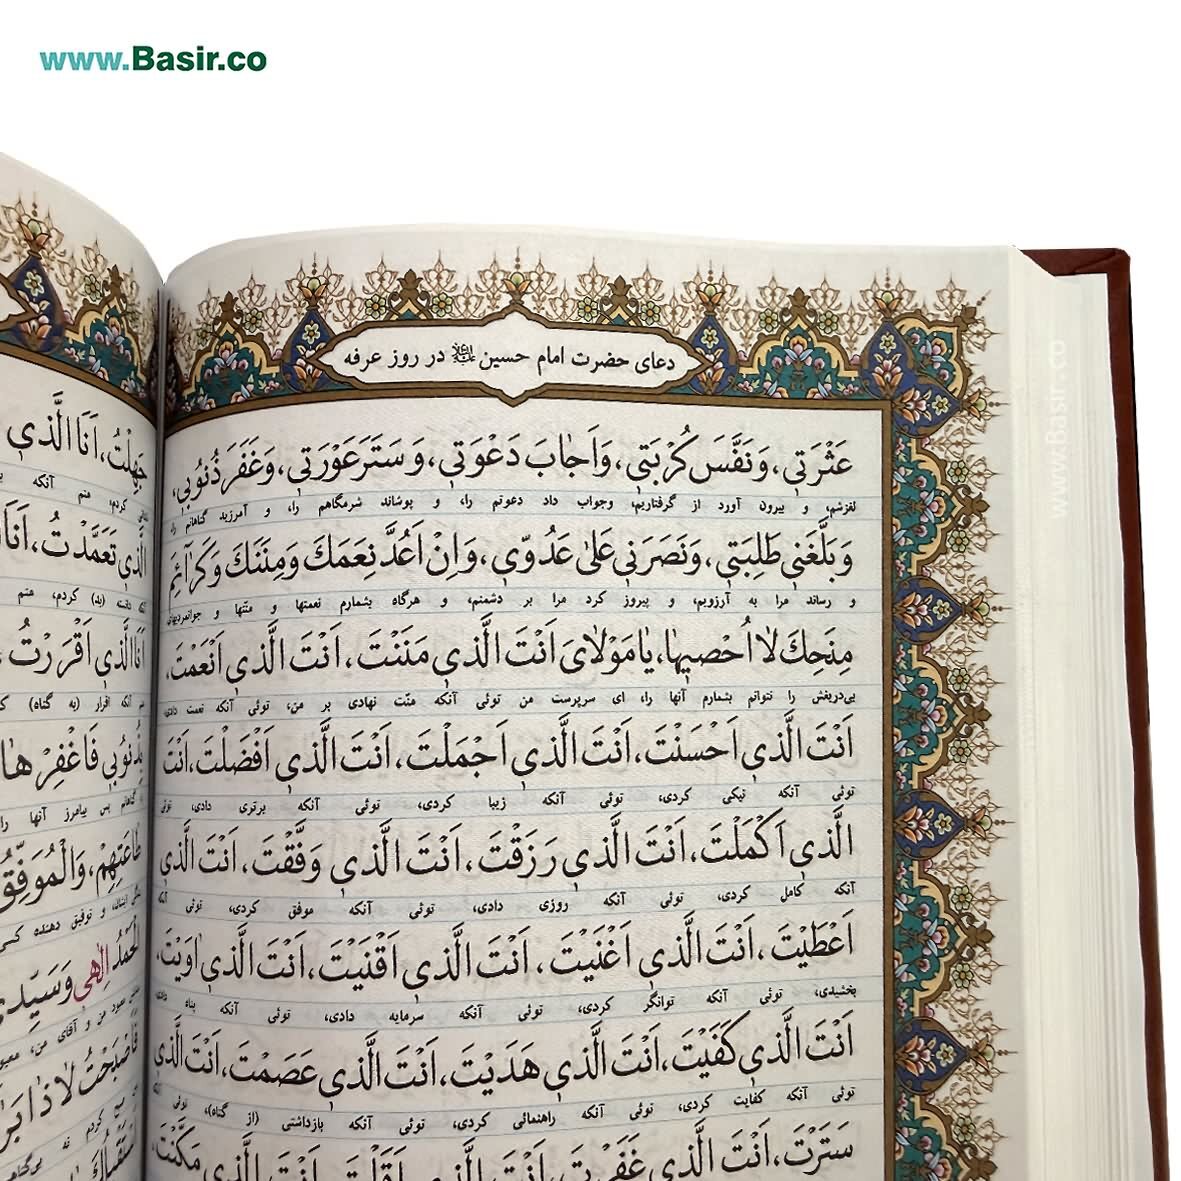 www.Basir.co
دعای حضرت امام حسین علیه‌السلام در روز عرفه
عَثْرَتي، وَ نَفَّسَ كُرْبَتي، وَ اَجابَ دَعْوَتي، وَ سَتَرَ عَوْرَتي، وَ غَفَرَ ذُنُوبي،
لغزشم، و بیرون آورد از گرفتاریم، وجواب داد دعوتم را، و پوشاند شرمگاهم را، و آمرزید گناهانم را،
وَ بَلَّغَني طَلِبَتي، وَ نَصَرَني عَلىٰ عَدُوّي، وَ اِنْ اَعُدَّ نِعَمَكَ وَ مِنَنَكَ وَ كَرآئِمَ
و رساند مرا به آرزویم، و پیروز کرد مرا بر دشمنم، و هرگاه بشمارم نعمتها و منّتها و جوانمردیهای
مِنَحِكَ لا اُحْصيها، يا مَوْلايَ اَنْتَ الَّذي مَنَنْتَ، اَنْتَ الَّذي اَنْعَمْتَ،
بی‌دریغش را نتوانم بشمارم آنها را، ای سرپرست من توئی آنکه منّت نهادی بر من، توئی آنکه نعمت دادی،
اَنْتَ الَّذي اَحْسَنْتَ، اَنْتَ الَّذي اَجْمَلْتَ، اَنْتَ الَّذي اَفْضَلْتَ، اَنْتَ
توئی آنکه نیکی کردی، توئی آنکه زیبا کردی، توئی آنکه برتری دادی، توئی
الَّذي اَكْمَلْتَ، اَنْتَ الَّذي رَزَقْتَ، اَنْتَ الَّذي وَفَّقْتَ، اَنْتَ الَّذي
آنکه کامل کردی، توئی آنکه روزی دادی، توئی آنکه موفق کردی، توئی آنکه
اَعْطَيْتَ، اَنْتَ الَّذي اَغْنَيْتَ، اَنْتَ الَّذي اَقْنَيْتَ، اَنْتَ الَّذي اٰوَيْتَ،
بخشیدی، توئی آنکه توانگر کردی، توئی آنکه سرمایه دادی، توئی آنکه پناه دادی،
اَنْتَ الَّذي كَفَيْتَ، اَنْتَ الَّذي هَدَيْتَ، اَنْتَ الَّذي عَصَمْتَ، اَنْتَ الَّذي
توئی آنکه کفایت کردی، توئی آنکه راهنمائی کردی، توئی آنکه بازداشتی (از گناه)، توئی آنکه
سَتَرْتَ، اَنْتَ الَّذي غَفَرْتَ، اَنْتَ الَّذي اَقَلْتَ، اَنْتَ الَّذي مَكَّنْتَ،
جَهِلْتُ، اَنَا الَّذي
کردم، منم آنکه
الَّذي تَعَمَّدْتُ، اَنَا
آنکه دانسته (بد) کردم، منم
اَنَا الَّذي اَقْرَرْتُ
آنکه اقرار (به گناه)
ذُنُوبي فَاغْفِرْها
گناهانم پس بیامرز آنها را
طاعَتِهِمْ، وَ الْمُوَفِّقُ
و توفیق دهنده کسی
الْحَمْدُ اِلٰهي وَ سَيِّدي
معبود من و آقای من،
فَاَصْبَحْتُ لا ذا
www.Basir.co